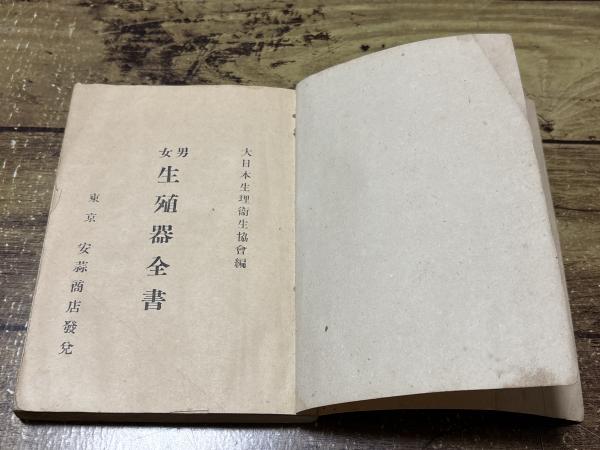 大日本生理衛生協會編
男女
生殖器全書
東京 安蒜商店發兌